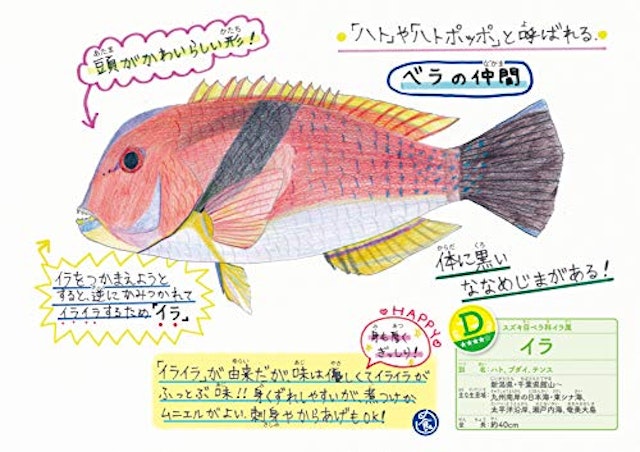 頭がかわいらしい形！
「ハト」や「ハトポッポ」と呼ばれる。
ベラの仲間
イラをつかまえようと
すると、逆にかみつかれて
イライラするため「イラ」
体に黒い
ななめじまがある！
HAPPY
身も厚く
ぎっしり！
「イライラ」が由来だが味は優しくてイライラが
ふっとぶ味！！身くずれしやすいが、煮つけか
ムニエルがよい。刺身やからあげもOK！
食
D
スズキ目ベラ科イラ属
イラ
別名：ハト、ブダイ、テンス
主な生息域：新潟県・千葉県館山〜
九州南岸の日本海・東シナ海、
太平洋沿岸、瀬戸内海、奄美大島
全長：約40cm